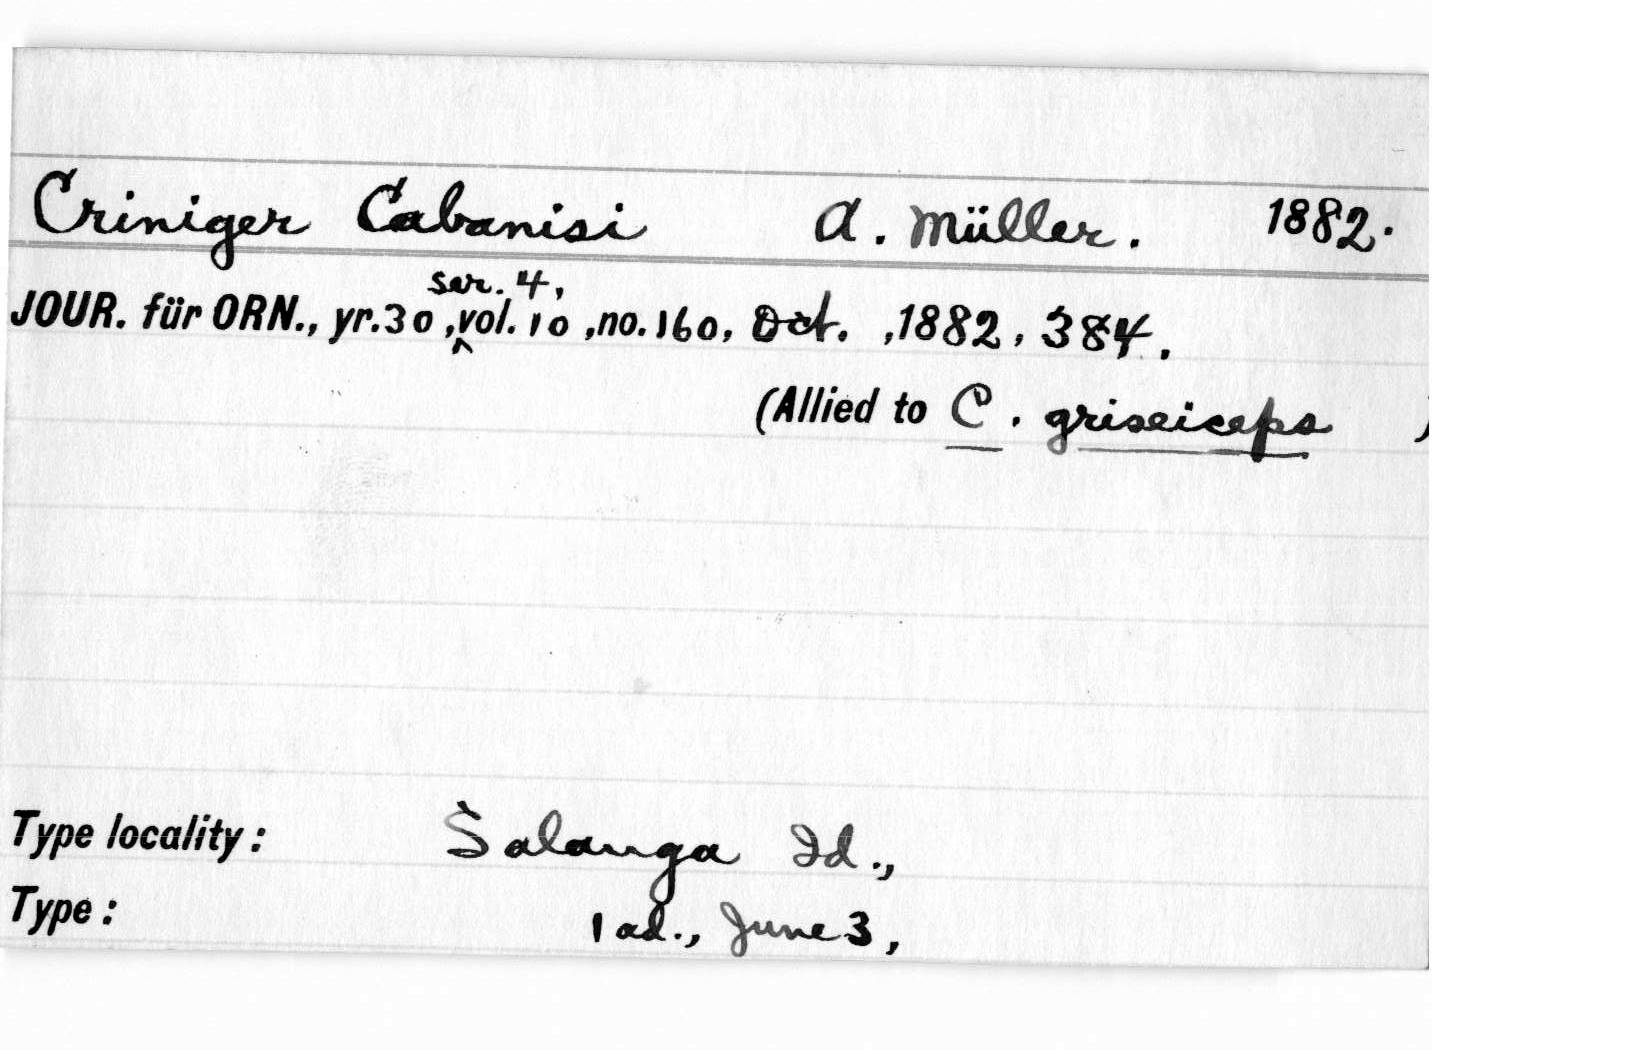 Criniger Cabanisi A. Müller. 1882.
ser. 4,
JOUR. für ORN., yr. 30 ,^vol. 10 ,no. 160, Oct. ,1882, 384.
(Allied to C. griseiceps )
Type locality: Salanga Id.,
Type: 1 ad., June 3,